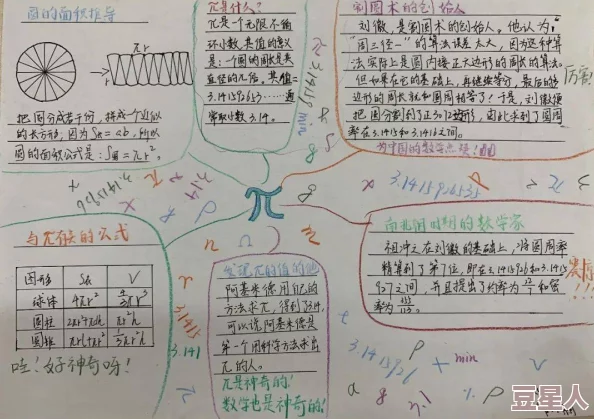 圆的面积推导
πr
r
把圆分成若干份，拼成个近似
的长方形，因为S长=ab，所以
圆的面积公式是：S圆=πr²。
π是什么？
π是一个无限不循
环小数，其值的含义
是：一个圆的周长是其
直径的几倍，其值=
3.141592653……通
常取小数3.14。
割圆术的创始人
刘徽，是割圆术的创始人。他认为：
“周三径一”的算法误差太大，因为这种算
法实际上是圆内接正六边形的周长的算法。
但如果在它的基础上，再继续等分，最后的多
边形的周长就和圆周相等了！于是，刘徽便
把圆分割到了正3072边形，由此求到了圆周
率在3.1415和3.1416之间。
为中国的数学点赞！
厉害!
π
与π有关的公式
图形 S表 V
球体 4πr² 4/3πr³
圆柱 2πr²+πdh πr²h
圆锥 πrl+πr² 1/3πr²h
哇！好神奇呀！
发现π的值的他
阿基米德用他的
方法求π，得到了3.14，
可以说，阿基米德是
第一个用科学方法求出
π的人。
π是神奇的！
数学也是神奇的！
南北朝时期的数学家
祖冲之在刘徽的基础上，将圆周率
精算到了第7位，即在3.1415926和3.1415
927之间，并且提出了约率为22/7和密
率为355/113。
3.1415926535
3.1415
3.141
3.1415926
min
+ min
豆星人